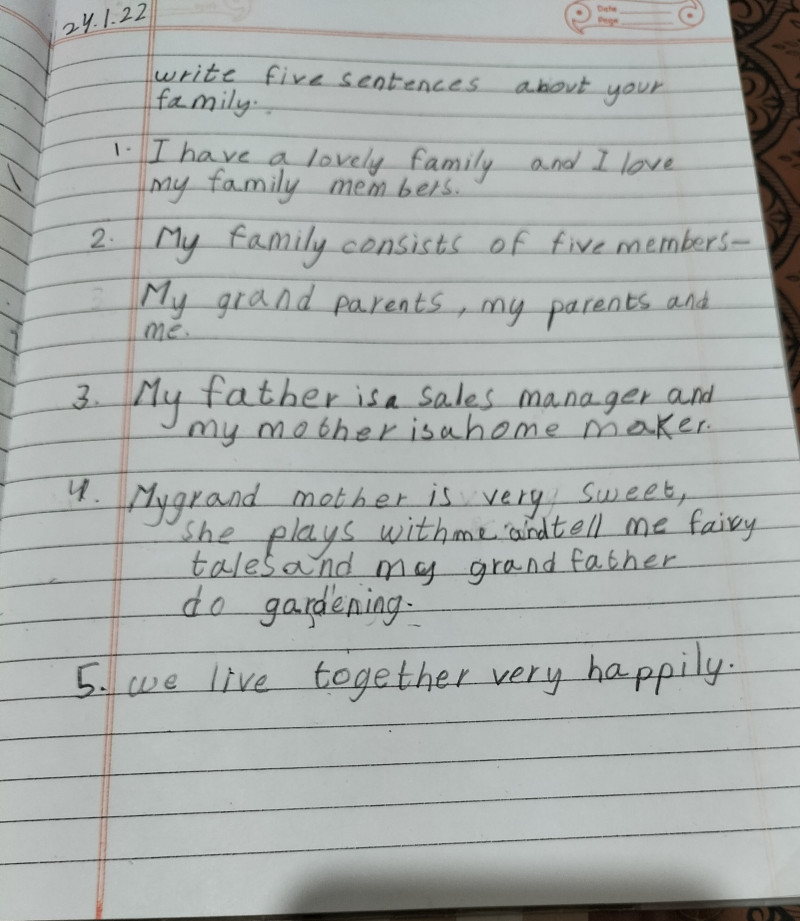 24.1.22
Date
Page
write five sentences about your
family.
1. I have a lovely family and I love
my family members.
2. My family consists of five members-
My grand parents, my parents and
me.
3. My father is a sales manager and
my mother is a home maker.
4. My grand mother is very sweet,
she plays with me and tell me fairy
tales and my grand father
do gardening.
5. we live together very happily.